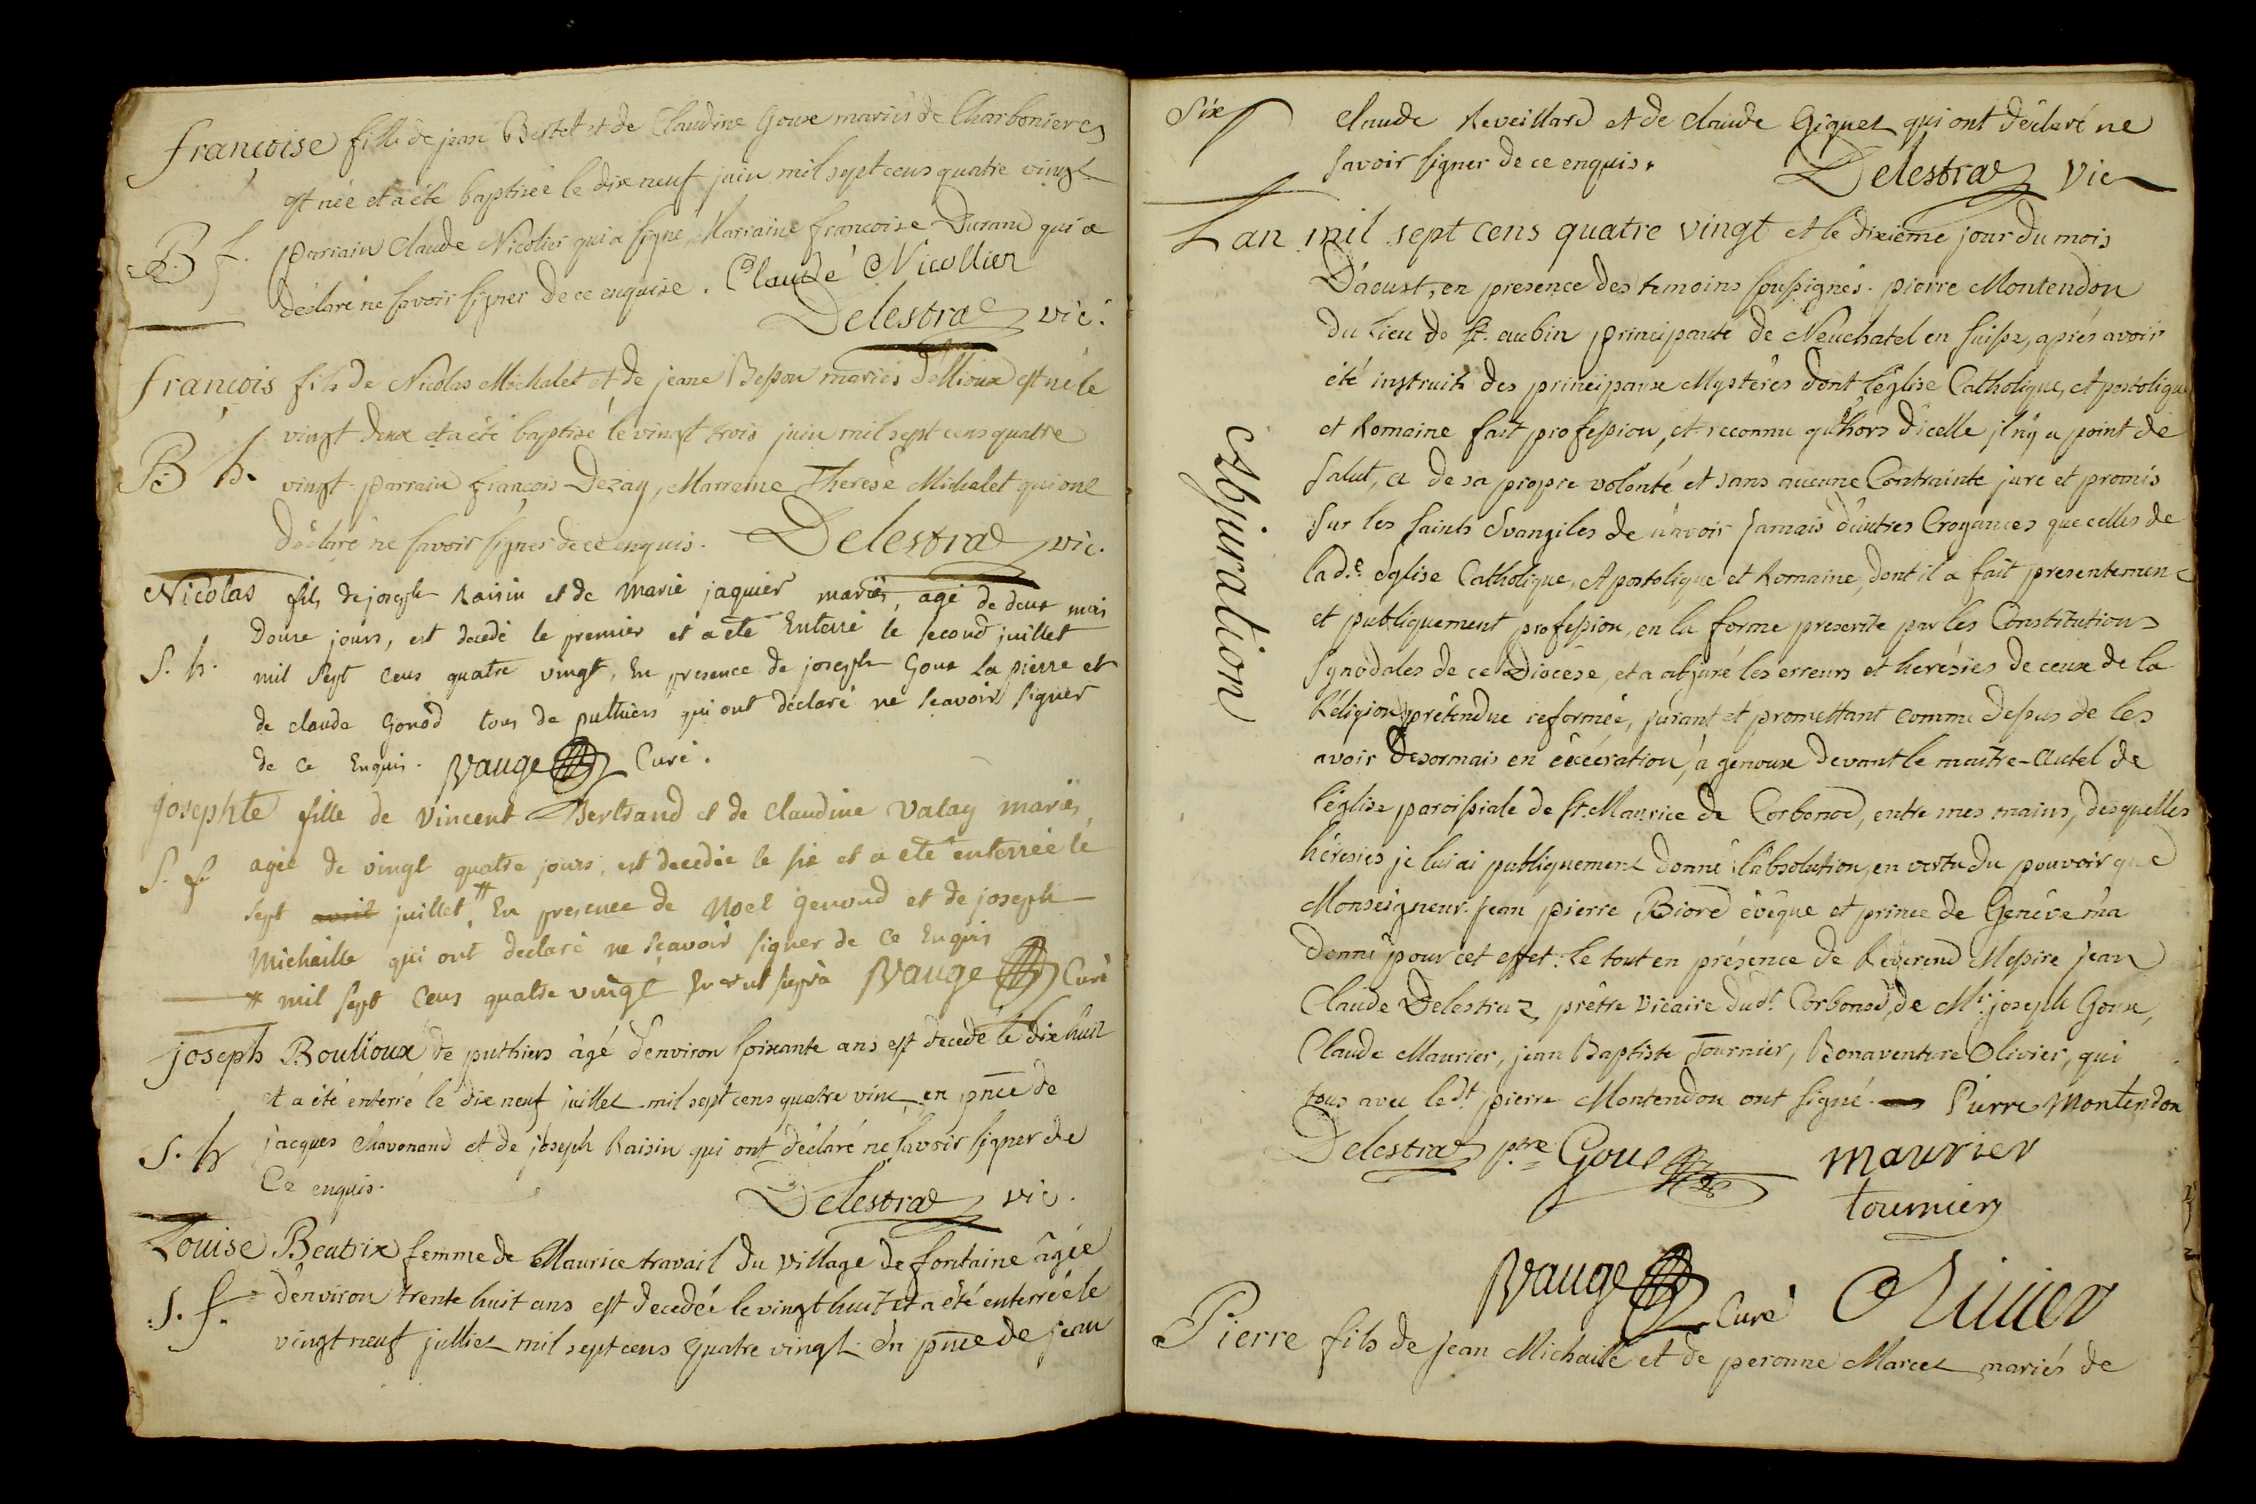 françoise fille de jean Bertet et de Claudine Goux mariés de Charbonieres
est née et a été baptisée le dix neuf juin mil sept cens quatre vingt
B. f. parrain Claude Nicolier qui a signe, Marraine francoise Durand qui a
déclaré ne savoir signer de ce enquise. Claude Nicollier
Delestraz vic.
françois fils de Nicolas Michalet et de jeane Besson mariés d'Ollioux est né le
vingt deux et a été baptisé le vingt trois juin mil sept cens quatre
B. h. vingt parrain françois Dezay, Marraine Therese Michalet qui ont
déclaré ne savoir signer de ce enquis. Delestraz vic.
Nicolas fils de joseph Raisin et de Marie jaquier mariés, agé de deux mois
Douze jours, est decedé le premier et a eté Enterré le second juillet
S. h. mil sept cens quatre vingt, En presence de joseph Goux La pierre et
de claude Gonod tous de puthiers qui ont declaré ne scavoir signer
de ce Enquis. Vauge Curé.
josephte fille de Vincent Bertrand et de Claudine Valay mariés,
S. f agée de vingt quatre jours, est decedée le six et a eté enterrée le
sept avril juillet # En presence de Noel Genoud et de joseph
Michaille qui ont declaré ne sçavoir signer de ce Enquis
# mil sept cens quatre vingt Vauge Curé
joseph Boullioux de puthiers âgé d'environ soixante ans est decedé le dix huit
et a été enterré le dix neuf juillet mil sept cens quatre vint en pnce de
S. h jacques Chavonand et de joseph Raisin qui ont déclaré ne savoir signer de
Ce enquis. Delestraz vic.
Louise Beatrix femme de Maurice travail du village de fontaine âgée
S. f. d'environ trente huit ans est decedée le vingt huit et a été enterrée le
vingt neuf julliet mil sept cens quatre vingt En pnce de jean
Six
Claude Reveillard et de claude Giguet qui ont déclaré ne
savoir signer de ce enquis. Delestraz vic
Lan mil sept cens quatre vingt et le dixième jour du mois
D'aoust, en presence des temoins soussignés. pierre Montendon
du Lieu de St. aubin principauté de Neuchatel en suisse, aprés avoir
été instruit des principaux Mystères dont l'église Catholique, Apostolique
et Romaine fait profession, et reconnu qu'hors d'icelle il n'y a point de
salut, a de sa propre volonté et sans aucune Contrainte juré et promis
sur les saints Evangiles de n'avoir jamais d'autres Croyances que celles de
lad.e église Catholique, Apostolique et Romaine, dont il a fait presentement
et publiquement profession, en la forme prescrite par les Constitutions
Synodales de ce Diocèse, et a abjuré les erreurs et herésies de ceux de la
Réligion prétendue reformée, jurant et promettant comme dessus de les
avoir desormais en exécration, à genoux devant le maître-Autel de
l'église paroissiale de St. Maurice de Corbonod, entre mes mains, desquelles
héresies je lui ai publiquement donné l'absolution, en vertu du pouvoir que
Monseigneur jean pierre Biord évêque et prince de Genève m'a
donné pour cet effet. Le tout en présence de Réverend Messire jean
Claude Delestraz, prêtre vicaire dud.t Corbonod, de Mr. joseph Goux,
Claude Maurier, jean Baptiste Tournier, Bonaventure Olivier, qui
tous avec led.t pierre Montendon ont signé. Pierre Montendon
Abjuration
Delestraz ptre Goux maurier
tournier
Vauge Curé Olivier
Pierre fils de jean Michaille et de peronne Marcet mariés de